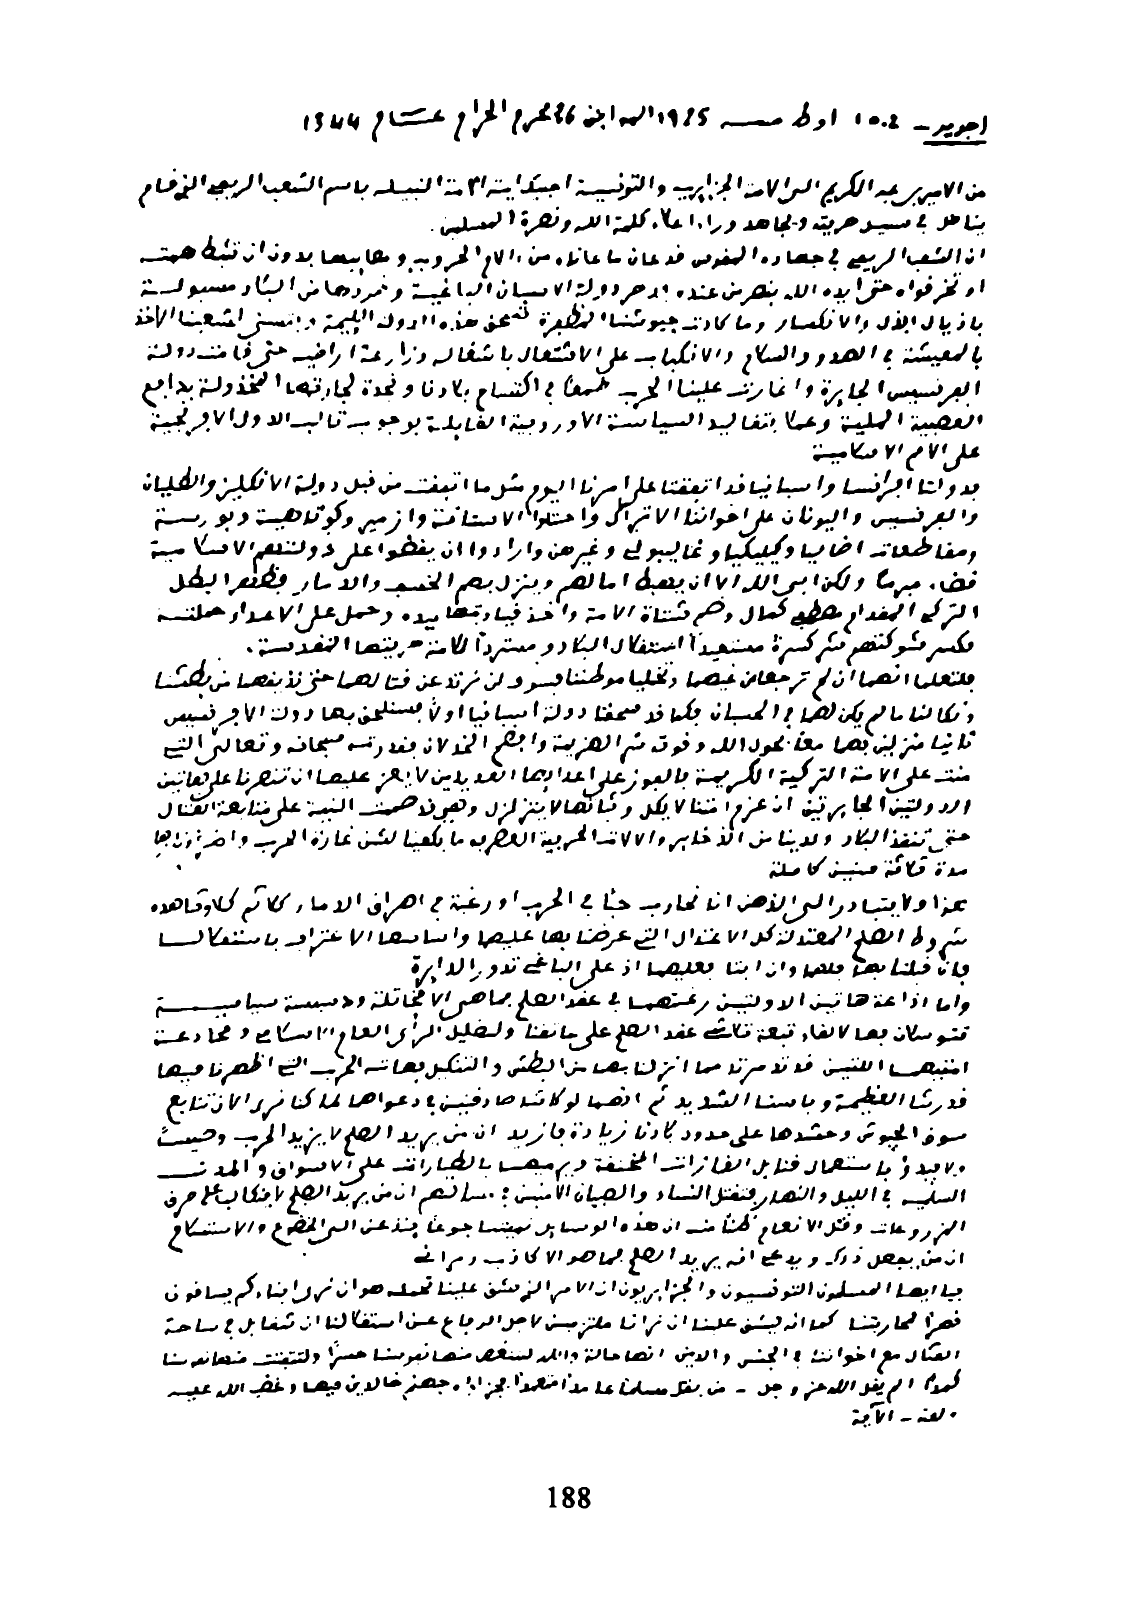 اجدير - في 15 اوط سنة 1925 الموافق 26 محرم الحرام عام 1344
من الامير بن عبد الكريم الى الامة الجزايرية والتونسية احييك ايتها الامة النبيلة باسم الشعب الريفي الذي قام
يناضل في سبيل حريته ويجاهد وراء اعلاء كلمة الله ونصرة المسلمين.
ان الشعب الريفي في جهاده المقدس قد عان ما عاناه من ءالام الحروب ومصايبها بدون ان تثبط همته
او تخر قواه حتى ايده الله بنصر من عنده ودحر دولة الاسبان الباغية وطردها من البلاد مسبولة
باذيال الذل والانكسار وما كادت جيوشنا المظفرة تسحق هذه الدولة اللييمة ويتسنى لشعبنا الاخذ
بالمعيشة في الهدو والسلام والانكباب على الاشتغال باشغاله وزراعة اراضيه حتى قامت دولة
الفرنسيس الجايرة واغارت علينا الحرب طمعا في اقتسام بلادنا ونجدة لجارتها المخذولة بدافع
العصبية الملية وعملا بتقاليد السياسة الاوروبية القايلة بوجوب تالب الدول الافرنجية
على الامم الاسلامية
فدولتا افرانسا واسبانيا قد اتفقتا على امرنا اليوم مثل ما اتفقت من قبل دولة الانكليز والطليان
والفرنسيس واليونان على اخواننا الاتراك واحتلوا الاستانة وازمير وكوتاهية وبورسة
ومقاطعات اضاليا وكيليكيا وغاليبولي وغيرهن وارادوا ان يقضوا على دولتهم الاسلامية
قضاء مبرما ولكن ابى الله الا ان يحبط امالهم وينزل بهم الخسف والدمار فظهر البطل
التركي المقدام مصطفى كمال وضم شتاة الامة واخذ قيادتها بيده وحمل على الاعداء حملته
فكسر شوكتهم شر كسرة مستعيدا استقلال البلاد ومستردا للامة حريتها المقدسة.
فلتعلما انهما ان لم ترجعا عن غيهما وتخليا موطننا فسوف لن نرتد عن قتالهما حتى نذيقهما من بطشنا
ونكالنا ما لم يكن لهما في الحسبان فكما قد سحقنا دولة اسبانيا اولا فسنلحق بها دولة الافرنسيس
ثانيا منزلين بهما معا بحول الله وقوته شر الهزيمة وافحم الخذلان بقدرته سبحانه وتعالى التي
منت على الامة التركية الكريمة بالفوز على اعدايها العديدين لا يعز عليها ان تنصرنا على هاتين
الدولتين الجايرتين ان عزم امتنا لا يكل وثباتها لا يتزلزل وهي قد صممت النية على متابعة القتال
حتى تنقذ البلاد ولدينا من الذخاير والالات الحربية العصرية ما يكفينا لشن غارة الحرب
مدة ثلاثة سنين كاملة
هذا ولا يتبادر الى الذهن انا نحارب حبا في الحرب او رغبة في اهراق الدماء كلا ثم كلا وشاهده
شروط الصلح المعتدلة كل الاعتدال التي عرضنا بها عليهما واساسها الاعتراف باستقلالنا
فان قبلتا بها فلهما وان ابتا فعليهما اذ على الباغي تدور الدايرة
واما اذاعة هاتين الدولتين رغبتهما في عقد الصلح فما هي الا مخاتلة ودسيسة سياسية
تتوسلان بها لالقاء تبعة تلاشي عقد الصلح على عاتقنا ولتضليل الراى العام الاسلامي ومخادعة
امتيهما اللتين قد تذمرتا مما انزلنا بهما من البطش والتنكيل بهاته الحرب التي اظهرنا فيها
قدرتنا العظيمة وباسنا الشديد ثم انهما لو كانتا صادقتين في دعواهما لما كنا نرى الان تتابع
سوق الجيوش وحشدها على حدود بلادنا زيادة فازيد ان من يريد الصلح لا يزيد الحرب
باستعمال قنابل الغازات المخنقة ورميها بالطيارات على الاسواق والمدن
السلمية في الليل والنهار فتقتل النساء والصبيان الامنين؛ نسالهم ان من يريد الصلح لا ينكالب على حرق
المزروعات وقتل الانعام ظنا منه ان هذه الوسايل تميتنا جوعا ينذعن الى الخضوع والاستسلام
ان من يفعل ذلك ويدعي انه يريد الصلح فما هو الا كاذب ومراءي
فيا ايها المسلمون التونسيون والجزايريون ان الامر الذي يشق علينا تحمله هو ان نرى ابناءكم يساقون
قهرا لمحاربتنا كما انه يشق علينا ان نرانا ملتزمين لاجل الدفاع عن استقلالنا ان نتقابل في ساحة
القتال مع اخواننا في الجنس والدين انها حالة والله لتنغص منها نفوسنا حسرا ولتتفتت منها نفوسنا
كمدا الم يقل الله عز وجل - من يقتل مسلما عامدا متعمدا فجزاؤه جهنم خالدا فيها وغضب الله عليه
ولعنه - الآية
188